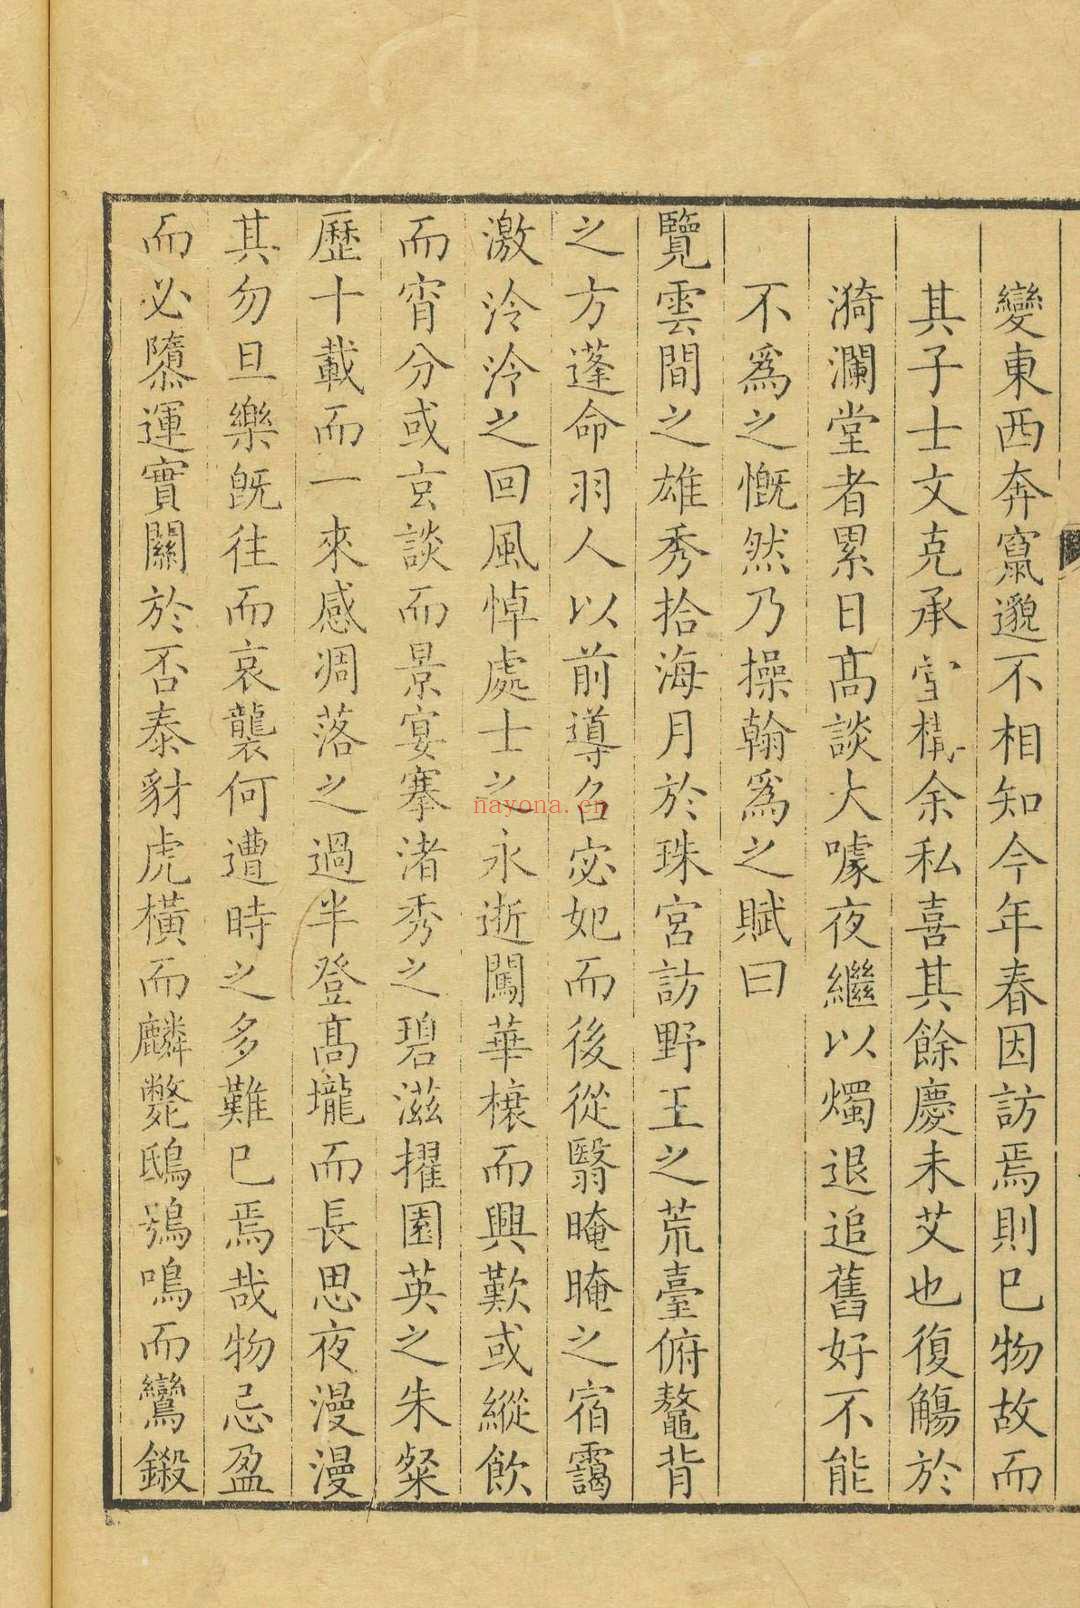 變東西奔竄邈不相知今年春因訪焉則已物故而
其子士文克承堂構余私喜其餘慶未艾也復觴於
漪瀾堂者累日高談大噱夜繼以燭退追舊好不能
不為之慨然乃操翰為之賦曰
覽雲間之雄秀拾海月於珠宮訪野王之荒臺俯鼇背
之方蓬命羽人以前導召宓妃而後從翳晻晻之宿靄
激泠泠之回風悼處士之永逝闖華榱而興歎或縱飲
而宵分或玄談而景宴搴渚秀之碧滋擢園英之朱粲
歷十載而一來感凋落之過半登高壠而長思夜漫漫
其勿旦樂既往而哀襲何遭時之多難已焉哉物忌盈
而必隳運實關於否泰豺虎橫而麟斃鴟鴞鳴而鸞鎩
nayona.cn